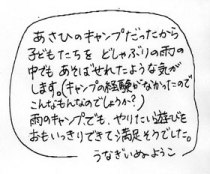 あさひのキャンプだったから
子どもたちを どしゃぶりの雨の
中でも あそばせれたような気が
します。(キャンプの経験がなかったので
こんなもんなのでしょうか?)
雨のキャンプでも、やりたい遊びを
おもいっきりできてう満足そうでした。
うなぎいぬ ようこ